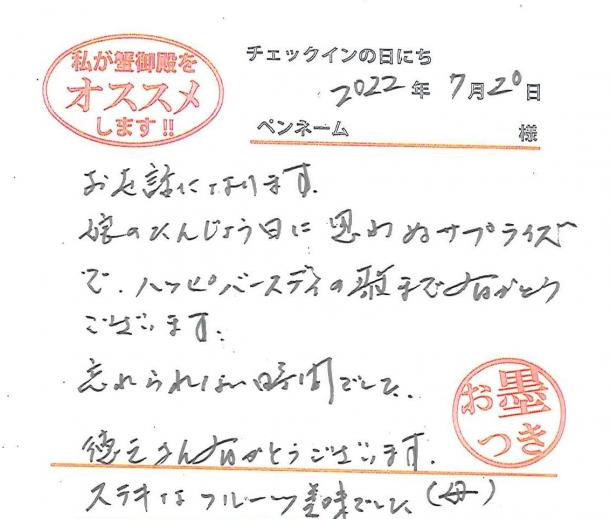 私が蟹御殿を
オススメ
します!!
チェックインの日にち
2022年7月20日
ペンネーム 様
お世話になります.
娘のたんじょう日に思わぬサプライズ
で、ハッピバースディの歌まで有がとう
ございます.
忘れられない時間でした、
徳元さん有がとうございます.
ステキなフルーツ美味でした、(母)
お墨
つき